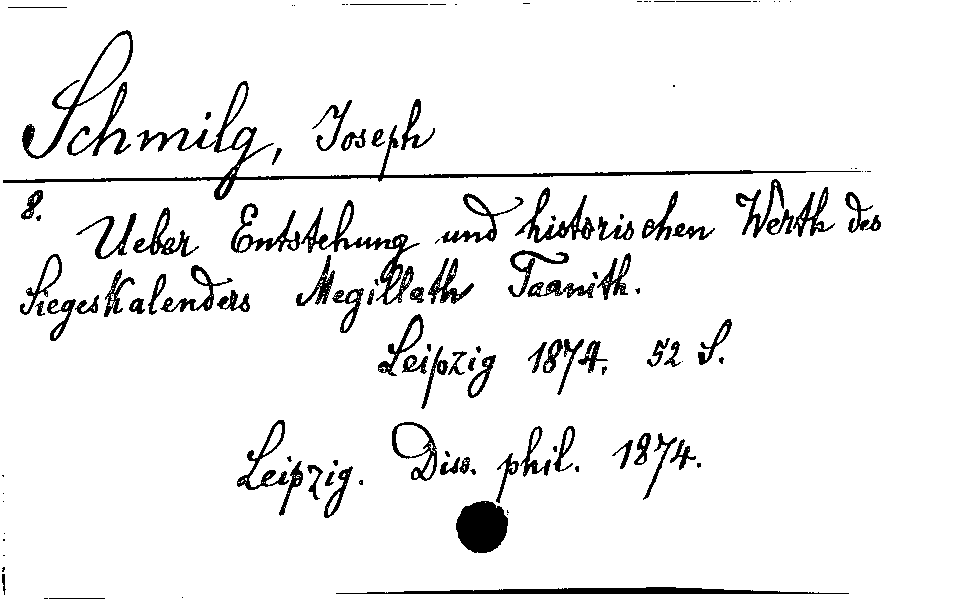 Schmilg, Joseph
8.
Ueber Entstehung und historischen Werth des
Siegeskalenders Megillath Taanith.
Leipzig 1874. 52 S.
Leipzig. Diss. phil. 1874.